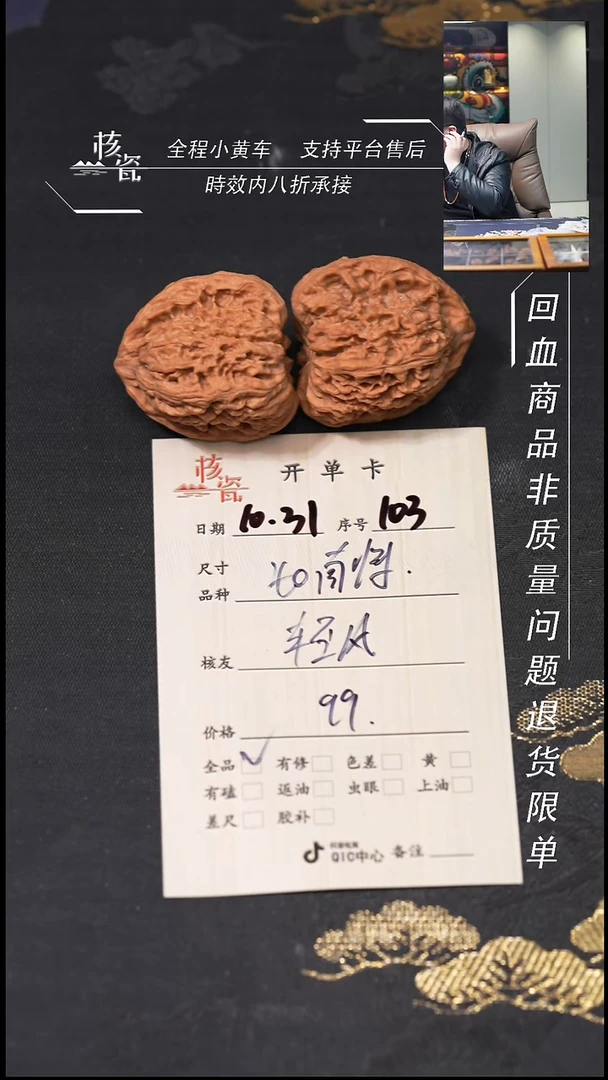 核瓷
全程小黄车 支持平台售后
時效内八折承接
回血商品非质量问题退货限单
核瓷
开单卡
日期 10.31 序号 103
尺寸
品种
核友
价格 99.
全品 ✓ 有修 色差 黄
有磕 返油 虫眼 上油
差尺 胶补
抖音电商
QIC中心 备注